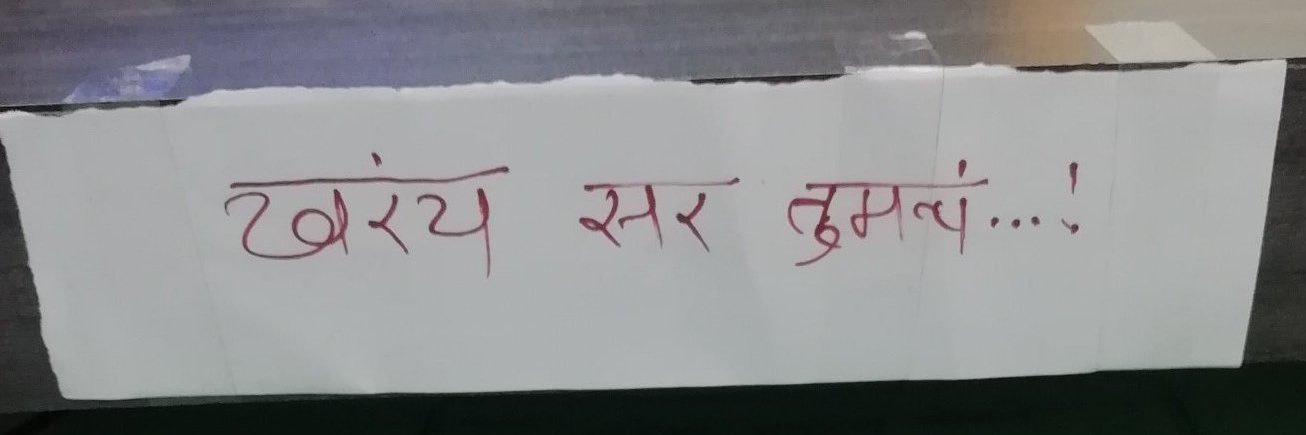 खरंय सर तुमचं...!